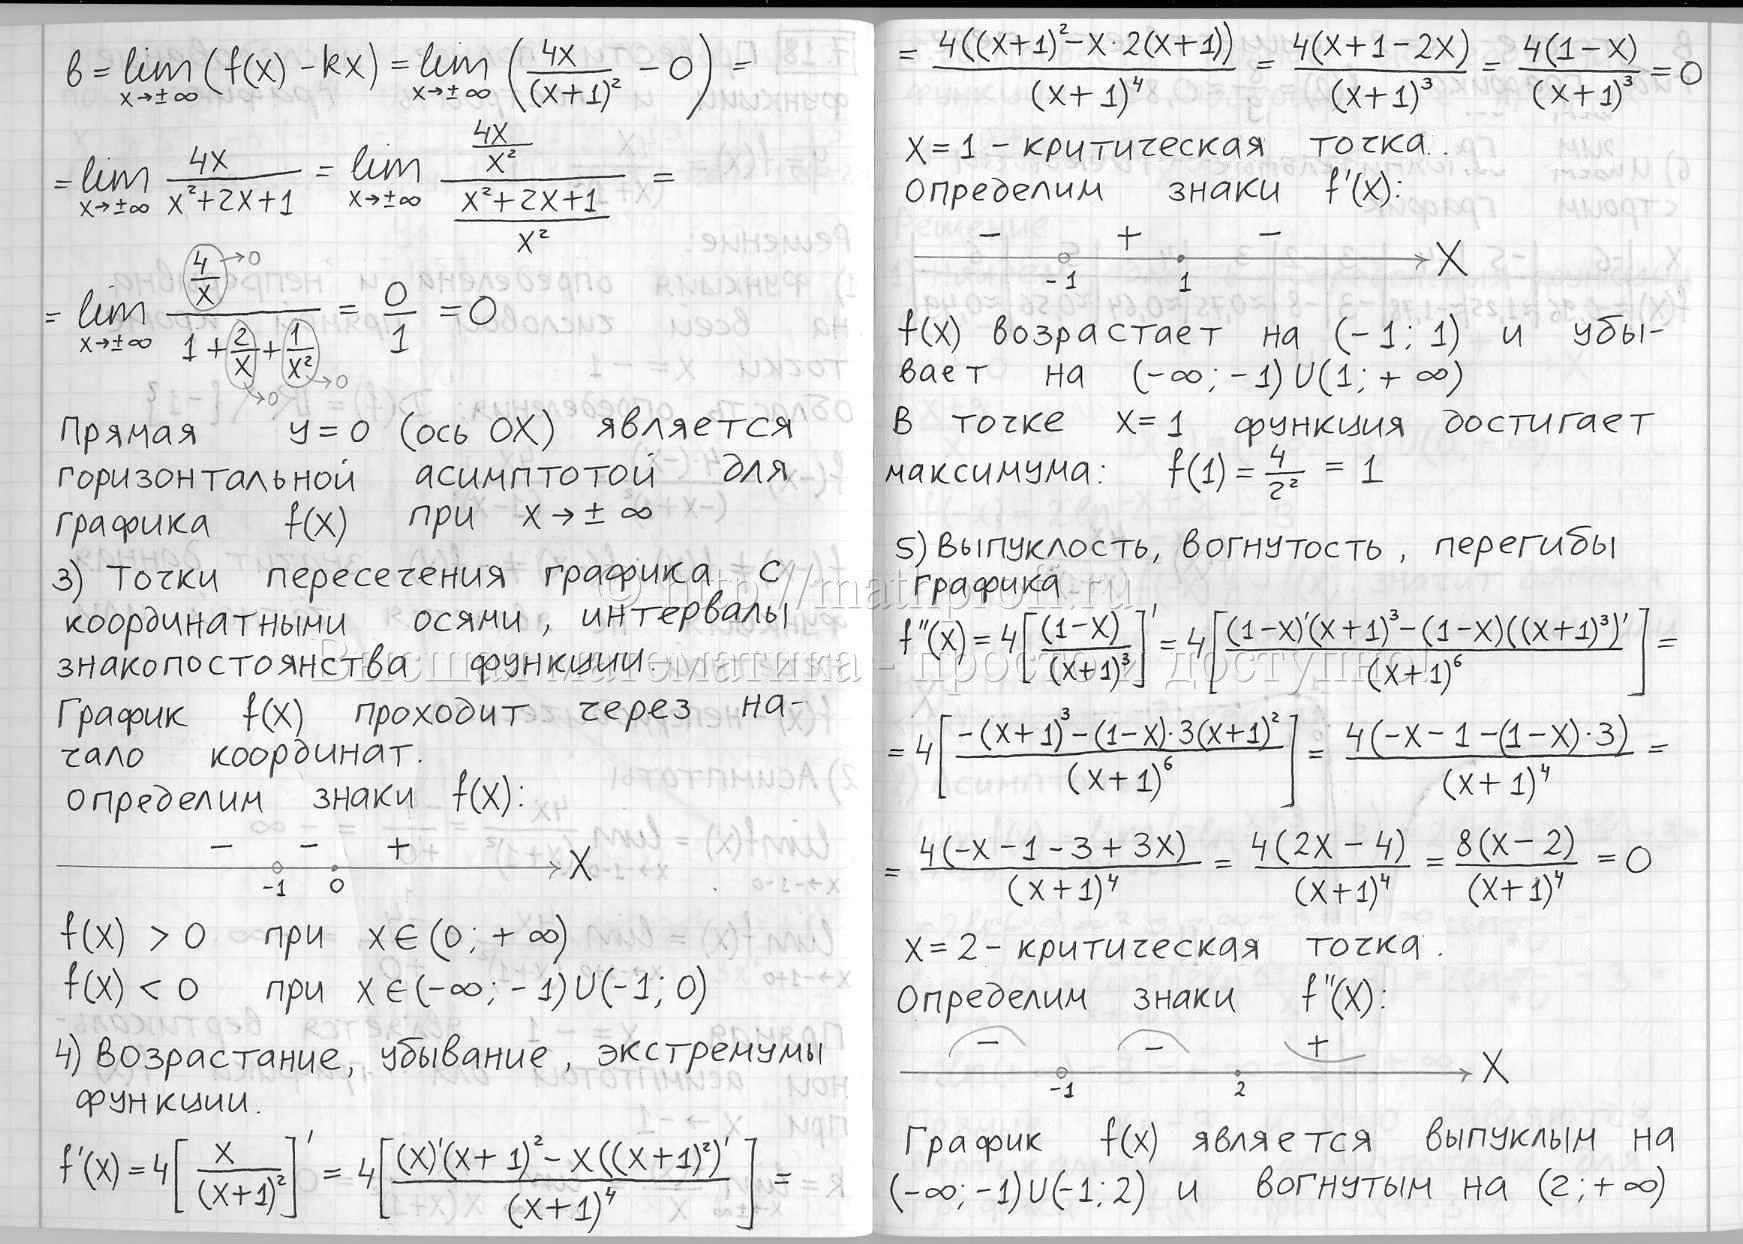 b = lim x→±∞ (f(x) - kx) = lim x→±∞ (4x/(x+1)² - 0) =
= lim x→±∞ 4x/(x²+2x+1) = lim x→±∞ (4x/x²)/((x²+2x+1)/x²) =
= lim x→±∞ (4/x →0)/(1 + 2/x →0 + 1/x² →0) = 0/1 = 0
Прямая y=0 (ось OX) является
горизонтальной асимптотой для
графика f(x) при x→±∞
3) Точки пересечения графика с
координатными осями, интервалы
знакопостоянства функции.
График f(x) проходит через на-
чало координат.
Определим знаки f(x):
− − + 
-1 0 X
f(x) > 0 при x∈(0; +∞)
f(x) < 0 при x∈(-∞; -1)U(-1; 0)
4) Возрастание, убывание, экстремумы
функции.
f'(x) = 4[x/(x+1)²]' = 4[((x)'(x+1)² - x((x+1)²)')/(x+1)⁴] =
= 4((x+1)² - x·2(x+1))/(x+1)⁴ = 4(x+1-2x)/(x+1)³ = 4(1-x)/(x+1)³ = 0
x=1 – критическая точка.
Определим знаки f'(x):
− + −
-1 1 X
f(x) возрастает на (-1; 1) и убы-
вает на (-∞; -1)U(1; +∞)
В точке x=1 функция достигает
максимума: f(1) = 4/2² = 1
5) Выпуклость, вогнутость, перегибы
графика
f''(x) = 4[(1-x)/(x+1)³]' = 4[((1-x)'(x+1)³ - (1-x)((x+1)³)')/(x+1)⁶] =
= 4[(-(x+1)³ - (1-x)·3(x+1)²)/(x+1)⁶] = 4(-x-1-(1-x)·3)/(x+1)⁴ =
= 4(-x-1-3+3x)/(x+1)⁴ = 4(2x-4)/(x+1)⁴ = 8(x-2)/(x+1)⁴ = 0
x=2 – критическая точка.
Определим знаки f''(x):
− − +
-1 2 X
График f(x) является выпуклым на
(-∞; -1)U(-1; 2) и вогнутым на (2; +∞)
© http://mathprofi.ru
Высшая математика - просто и доступно!